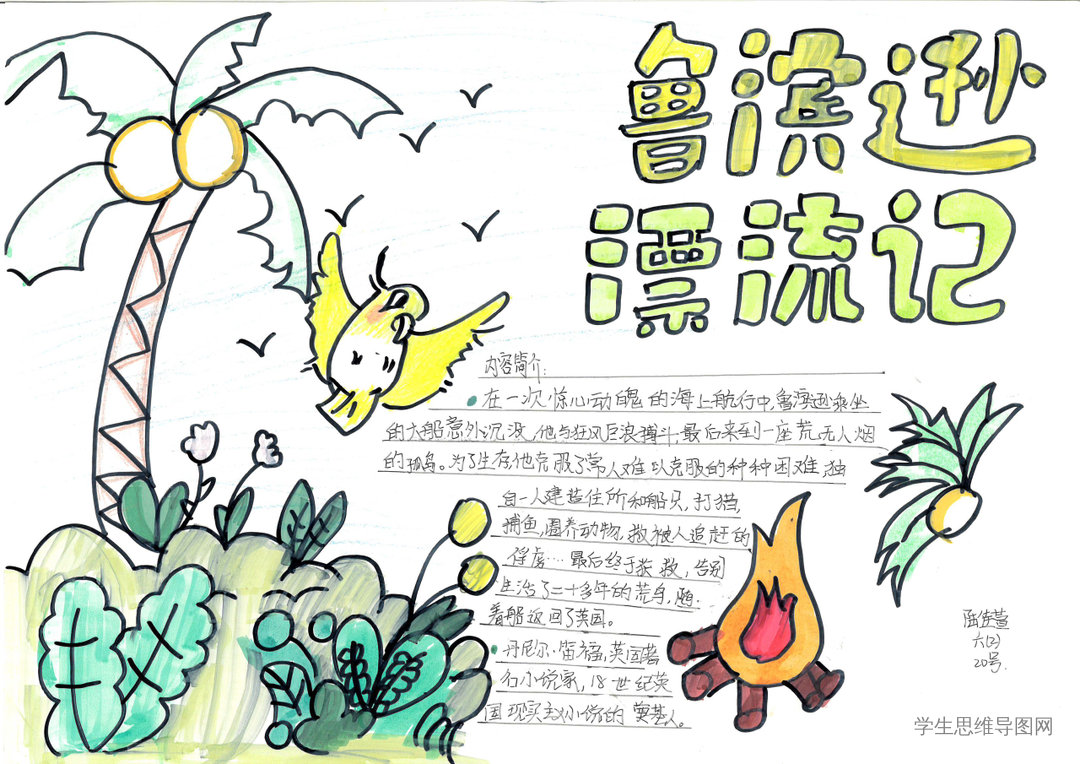 鲁滨逊
漂流记
内容简介:
在一次惊心动魄的海上航行中,鲁滨逊乘坐
的大船意外沉没,他与狂风巨浪搏斗,最后来到一座荒无人烟
的孤岛。为了生存他克服了常人难以克服的种种困难,独
自一人建造住所和船只,打猎,
捕鱼,圈养动物,救被人追赶的
俘虏…最后终于获救,告别
生活了二十多年的荒岛,随
着船返回了英国。
丹尼尔·笛福,英国著
名小说家,18世纪英
国现实主义小说的奠基人。
六(2)
20号.
学生思维导图网